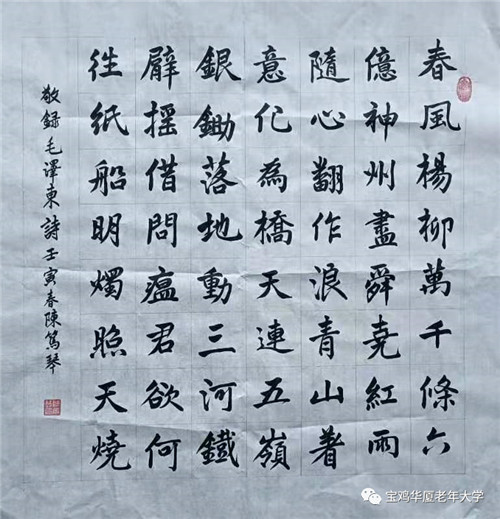 春風楊柳萬千條六
億神州盡舜堯紅雨
隨心翻作浪青山着
意化為橋天連五嶺
銀鋤落地動三河鐵
臂摇借問瘟君欲何
往紙船明燭照天燒
敬録毛澤東詩壬寅春陳篤琴
宝鸡华厦老年大学